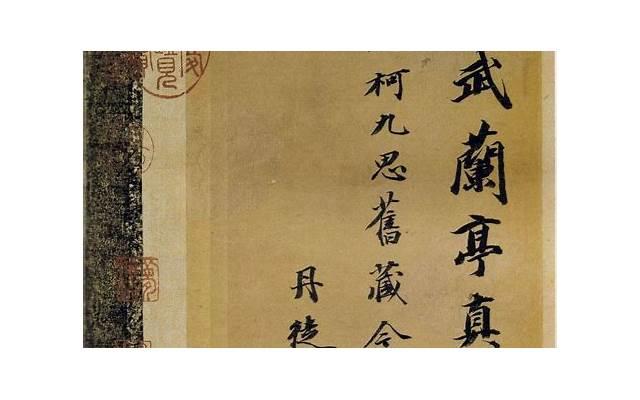 武蘭亭真
柯九思舊藏今
丹徒